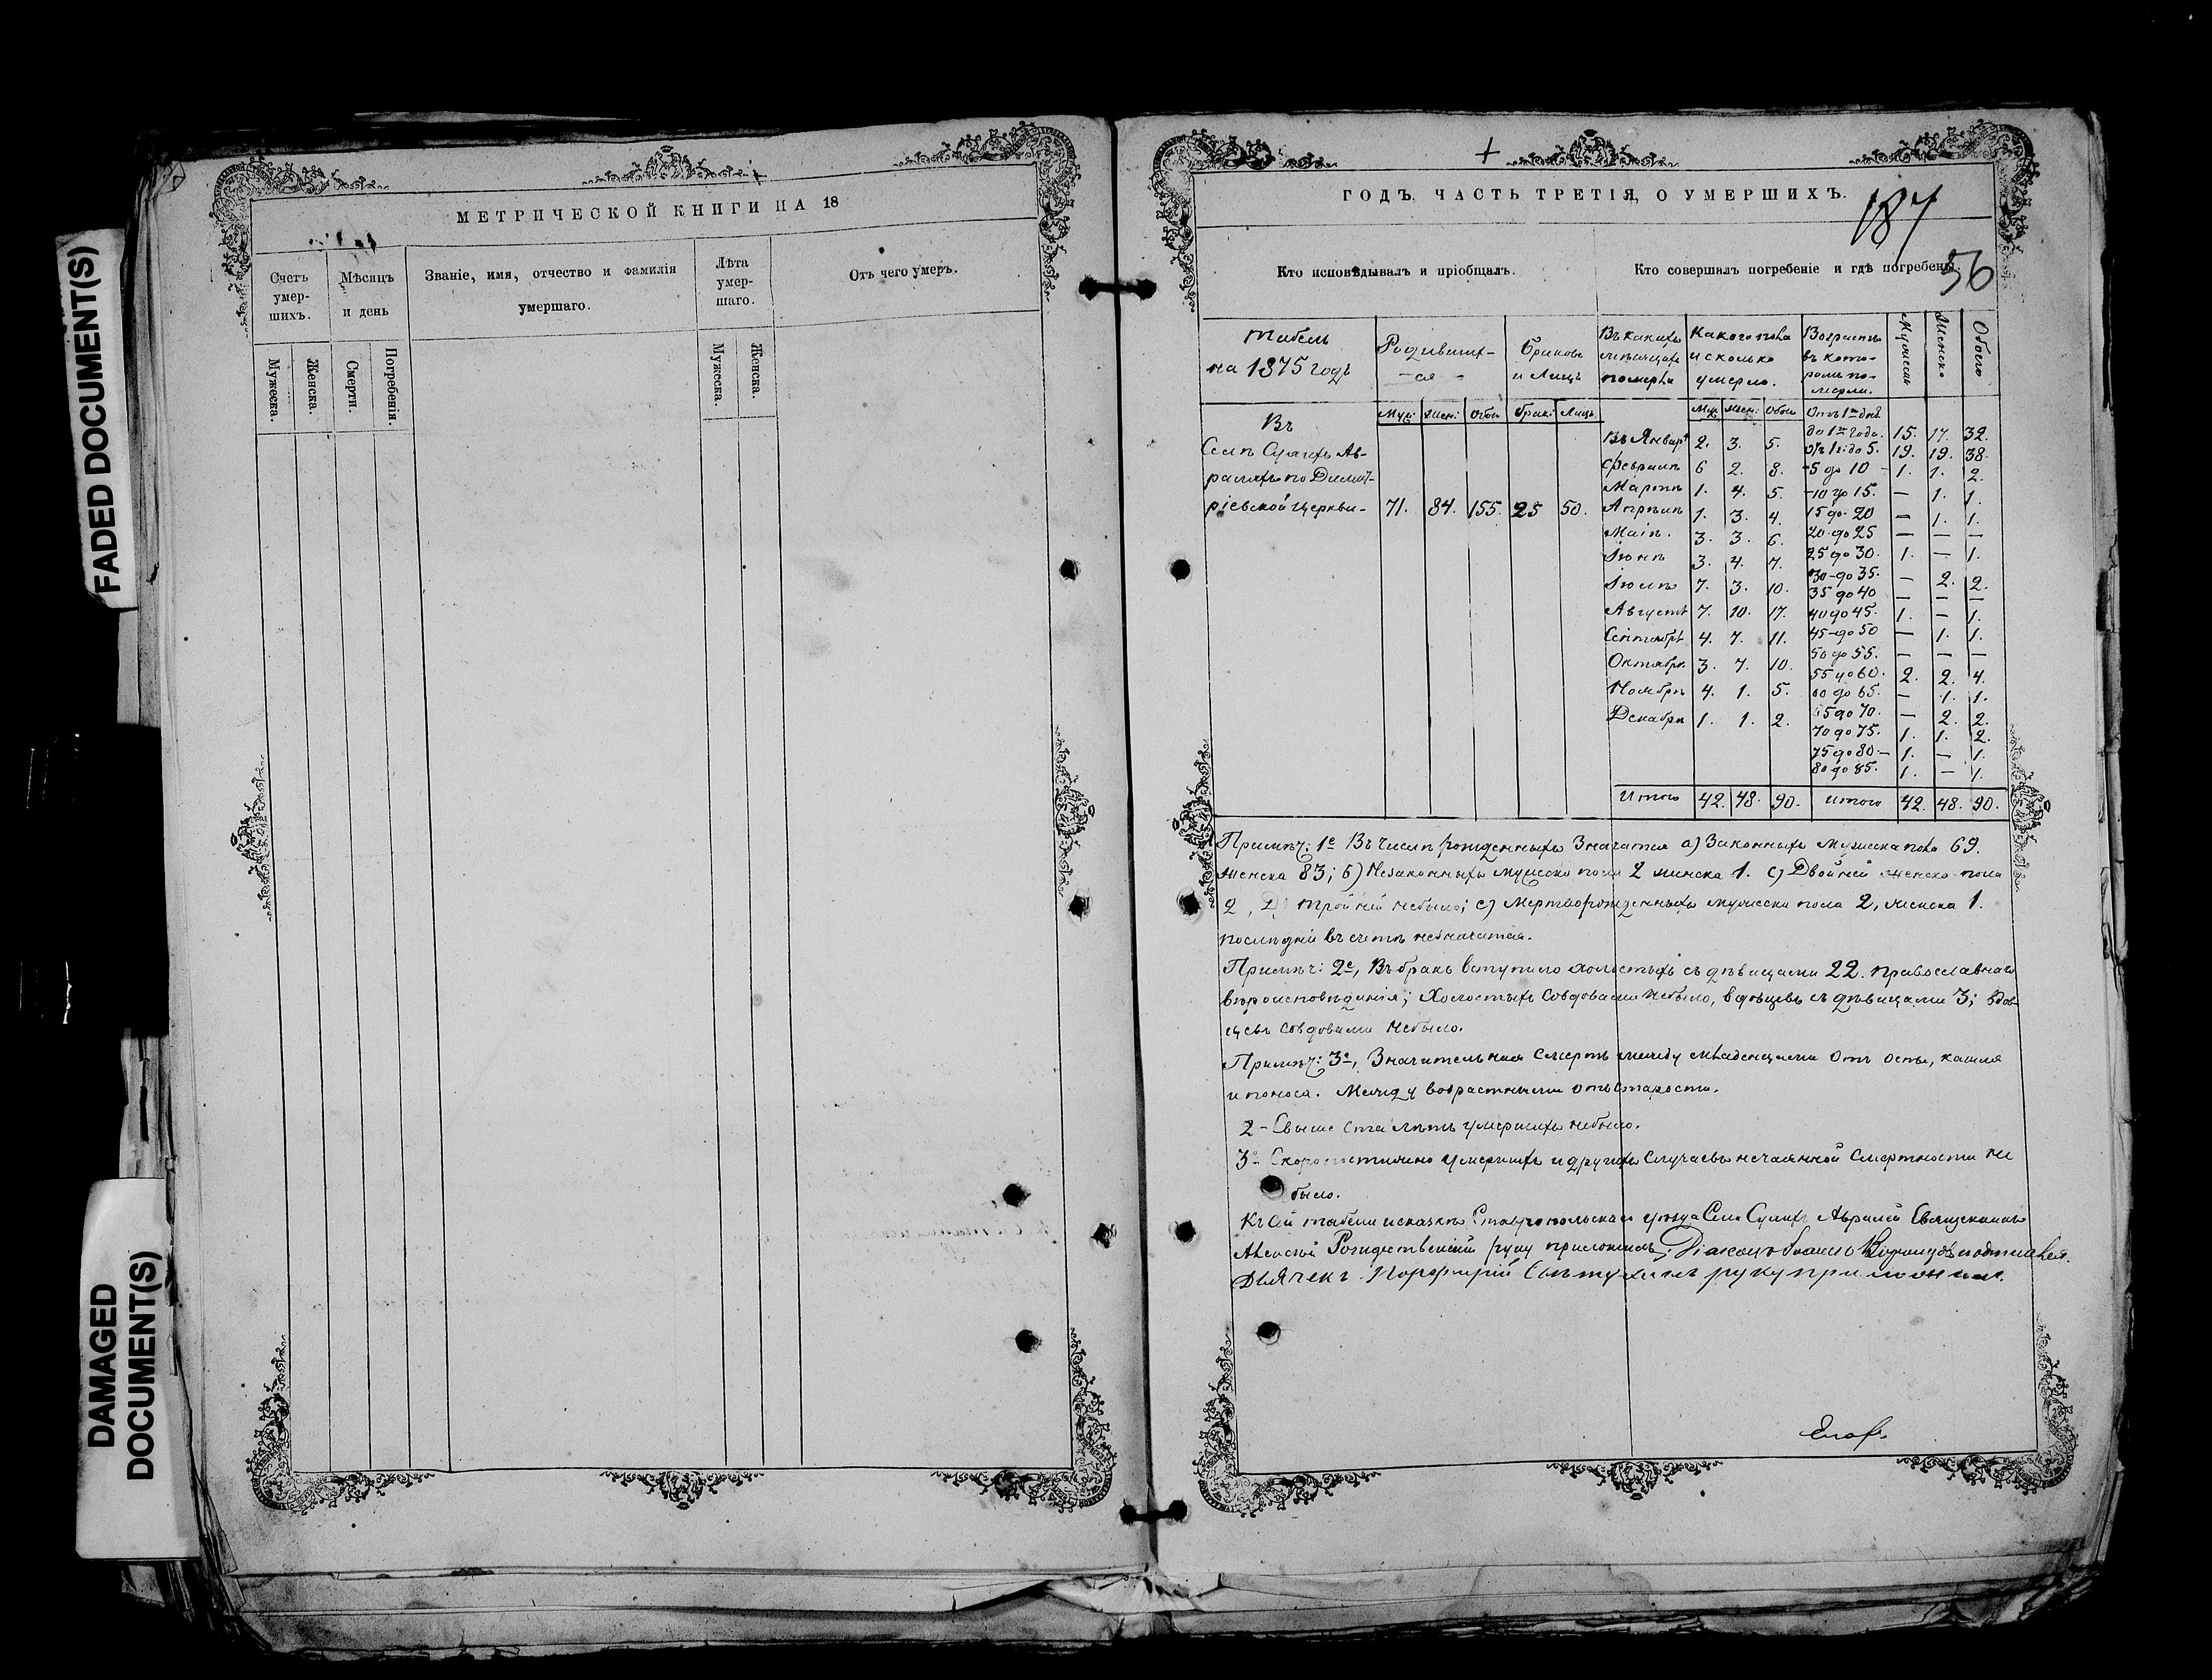 FADED DOCUMENT(S)
DAMAGED
DOCUMENT(S)
МЕТРИЧЕСКОЙ КНИГИ НА 18
Счетъ умер- шихъ.
Мѣсяцъ и день
Званіе, имя, отчество и фамилія умершаго.
Лѣта умер- шаго.
Отъ чего умеръ.
Мужеска. Женска. Смерти. Погребенія. Мужеска. Женска.
ГОДЪ, ЧАСТЬ ТРЕТІЯ, О УМЕРШИХЪ.
187
56
Кто исповѣдывалъ и пріобщалъ.
Кто совершалъ погребеніе и гдѣ погребены.
Табель
на 1875 годъ
Родивших-
-ся-
Браковъ
и Лицъ
Въ какихъ
мѣсяцахъ
померли
Какого пола
и сколько
умерло.
Возрастъ
въ кото-
ромъ по-
мерли.
Мужеск
Женско
Обоего
Муж: Жен: Обои Брак: Лицъ Муж Жен: Обои
Въ
Селѣ Сухихъ Ав-
раляхъ по Димит-
ріевской Церкви- 71. 84. 155. 25 50.
Въ Январѣ 2. 3. 5.
Февралѣ 6 2. 8.
Мартѣ 1. 4. 5.
Апрѣлѣ 1. 3. 4.
Маіѣ. 3. 3. 6.
Іюнѣ 3. 4. 7.
Іюлѣ 7. 3. 10.
Августѣ 7. 10. 17.
Сентябрѣ 4. 7. 11.
Октябрѣ 3. 7. 10.
Ноябрѣ 4. 1. 5.
Декабрѣ 1. 1. 2.
Итого 42. 48. 90.
до 1го года. 15. 17. 32.
отъ 1г: до 5. 19. 19. 38.
-5 до 10 - 1. 1. 2.
-10 до 15. — 1. 1.
15 до 20 — 1. 1.
20 до 25 — — —
25 до 30. 1. — 1.
30-до 35. — 2. 2.
35 до 40 — — —
40 до 45. 1. — 1.
45-до 50 — 1. 1.
50 до 55. — — —
55 до 60. 2. 2. 4.
60 до 65. — 1. 1.
65 до 70. — 2. 2.
70 до 75. 1. 1. 2.
75 до 80.— 1. — 1.
80 до 85. 1. — 1.
Итого 42. 48. 90.
Примѣч: 1е Въ числѣ рожденныхъ значатся а) Законныхъ мужеска пола 69.
женска 83; б) Незаконныхъ мужеска пола 2 женска 1. с) Двойней женска пола
2, Д) тройней небыло; е) Мертворожденныхъ мужеска пола 2, женска 1.
послѣдніе въ счетъ незначатся.
Примѣч: 2е, Въ бракъ вступило холостыхъ съ дѣвицами 22. православнаго
вѣроисповѣданія; Холостыхъ совдовами небыло, вдовцевъ съ дѣвицами 3; вдов-
цевъ совдовами небыло.
Примѣч: 3е, Значительная смерть между младенцами отъ оспы, кашля
и поноса. Между возрастными отъ старости.
2- Свыше ста лѣтъ умершихъ небыло.
3е Скоропостижно умершихъ и другихъ случаевъ нечаянной смертности не
было.
Къ сей табели Ставропольскаго уѣзда Села Сухихъ Авралей Священникъ
Рождественскій руку приложилъ; Діаконъ подписался.
Дьячекъ Порфирій руку приложилъ.